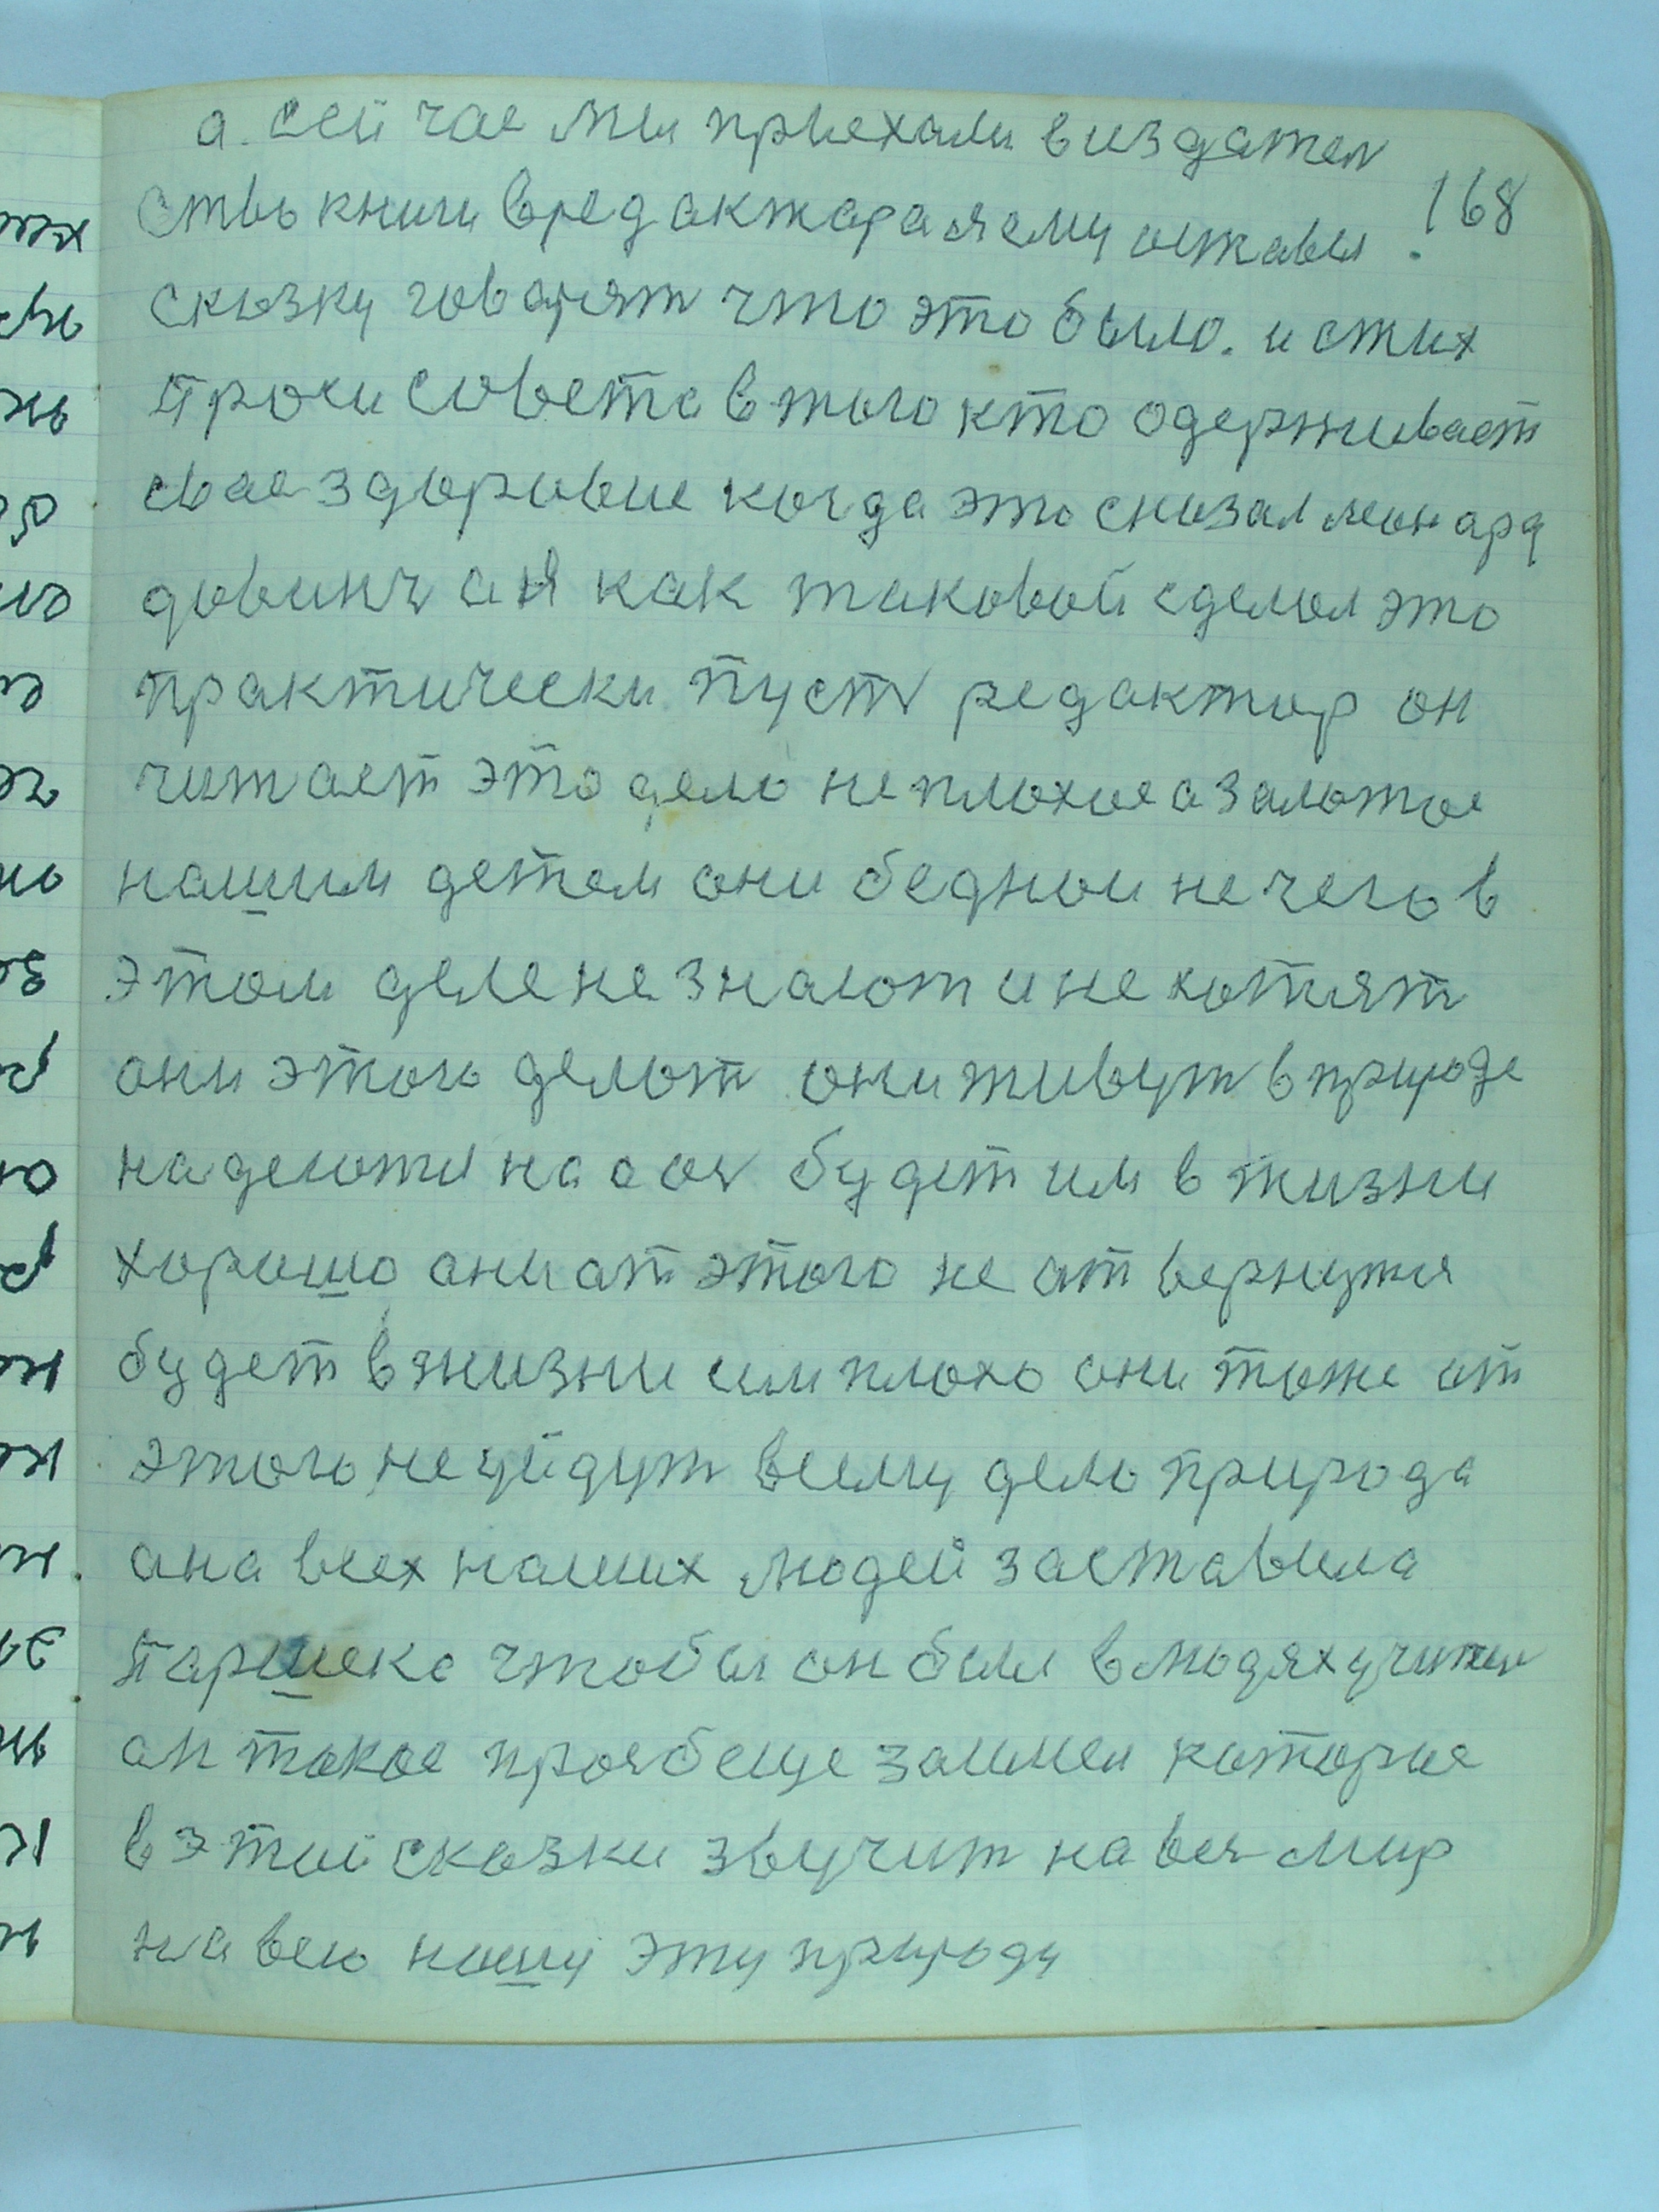 а. сей час мы приехали в издател
168
ство книги в редактара я ему оставил
сказку говарят что это было. и стих
проси совета в того кто одерживает
свае здоровие когда это сказал леонард
довинч а Я как таковой сделал это
практически пуст редактор он
читает это дело не плохое а залотое
нашим детем они бедном не чего в
этом деле не знают и не хотят
они этого делат они живут в природе
на делоти на аоч будет им в жизни
хорошо они от этого не отвернутся
будет в жизни им плохо они тоже от
этого не уйдут всему дело природа
ана всех наших людей заставила
паршека чтобы он был в людях учител
он такое проябеще заимел которые
в этой сказки звучит на вся мир
на всю нашу эту природу